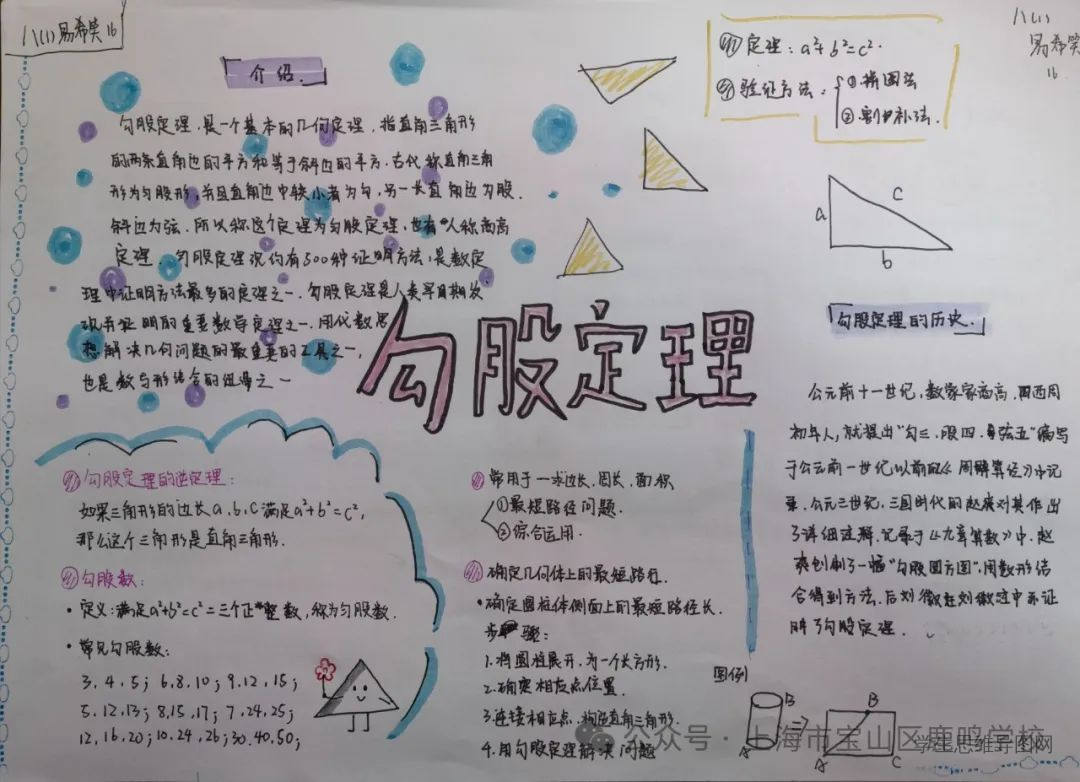 八(1) 易希笑 16
介绍.
勾股定理,是一个基本的几何定理,指直角三角形
的两条直角边的平方和等于斜边的平方.古代称直角三角
形为勾股形,并且直角边中较小者为勾,另一长直角边为股.
斜边为弦.所以称这个定理为勾股定理,也有人称商高
定理.勾股定理现约有500种证明方法,是数定
理中证明方法最多的定理之一.勾股定理是人类早期发
现并证明的重要数学定理之一,用代数思
想解决几何问题的最重要的工具之一,
也是数与形结合的纽带之一
勾股定理
定理:a²+b²=c².
验证方法:
①拼图法
②割补法.
八(1)
易希笑
16
a
c
b
勾股定理的历史.
公元前十一世纪,数学家商高,西周
初年人,就提出"勾三、股四、弦五"编写
于公元前一世纪以前的《周髀算经》中记
录.公元三世纪,三国时代的赵爽对其作出
了详细注解,记录于《九章算数》中,赵
爽创制了一幅"勾股圆方图",用数形结
合得到方法.后刘徽在刘徽过中亦证
明了勾股定理.
勾股定理的逆定理:
如果三角形的边长a、b、c满足a²+b²=c²,
那么这个三角形是直角三角形.
勾股数:
·定义:满足a²+b²=c²=三个正整数,称为勾股数.
·常见勾股数:
3、4、5; 6、8、10; 9、12、15;
5、12、13; 8、15、17; 7、24、25;
12、16、20; 10、24、26; 30、40、50;
常用于一求边长、周长、面积
①最短路径问题.
②综合运用.
确定几何体上的最短路径.
·确定圆柱体侧面上的最短路径长.
步骤:
1.将圆柱展开,为一个长方形.
2.确定相应点位置.
3.连接相应点,构造直角三角形.
4.用勾股定理解决问题
图例
B
A
B
A
C
公众号·上海市宝山区鹿鸣学校
学生思维导图网